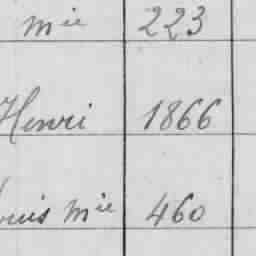 mie 223
Henri 1866
ouis mie 460